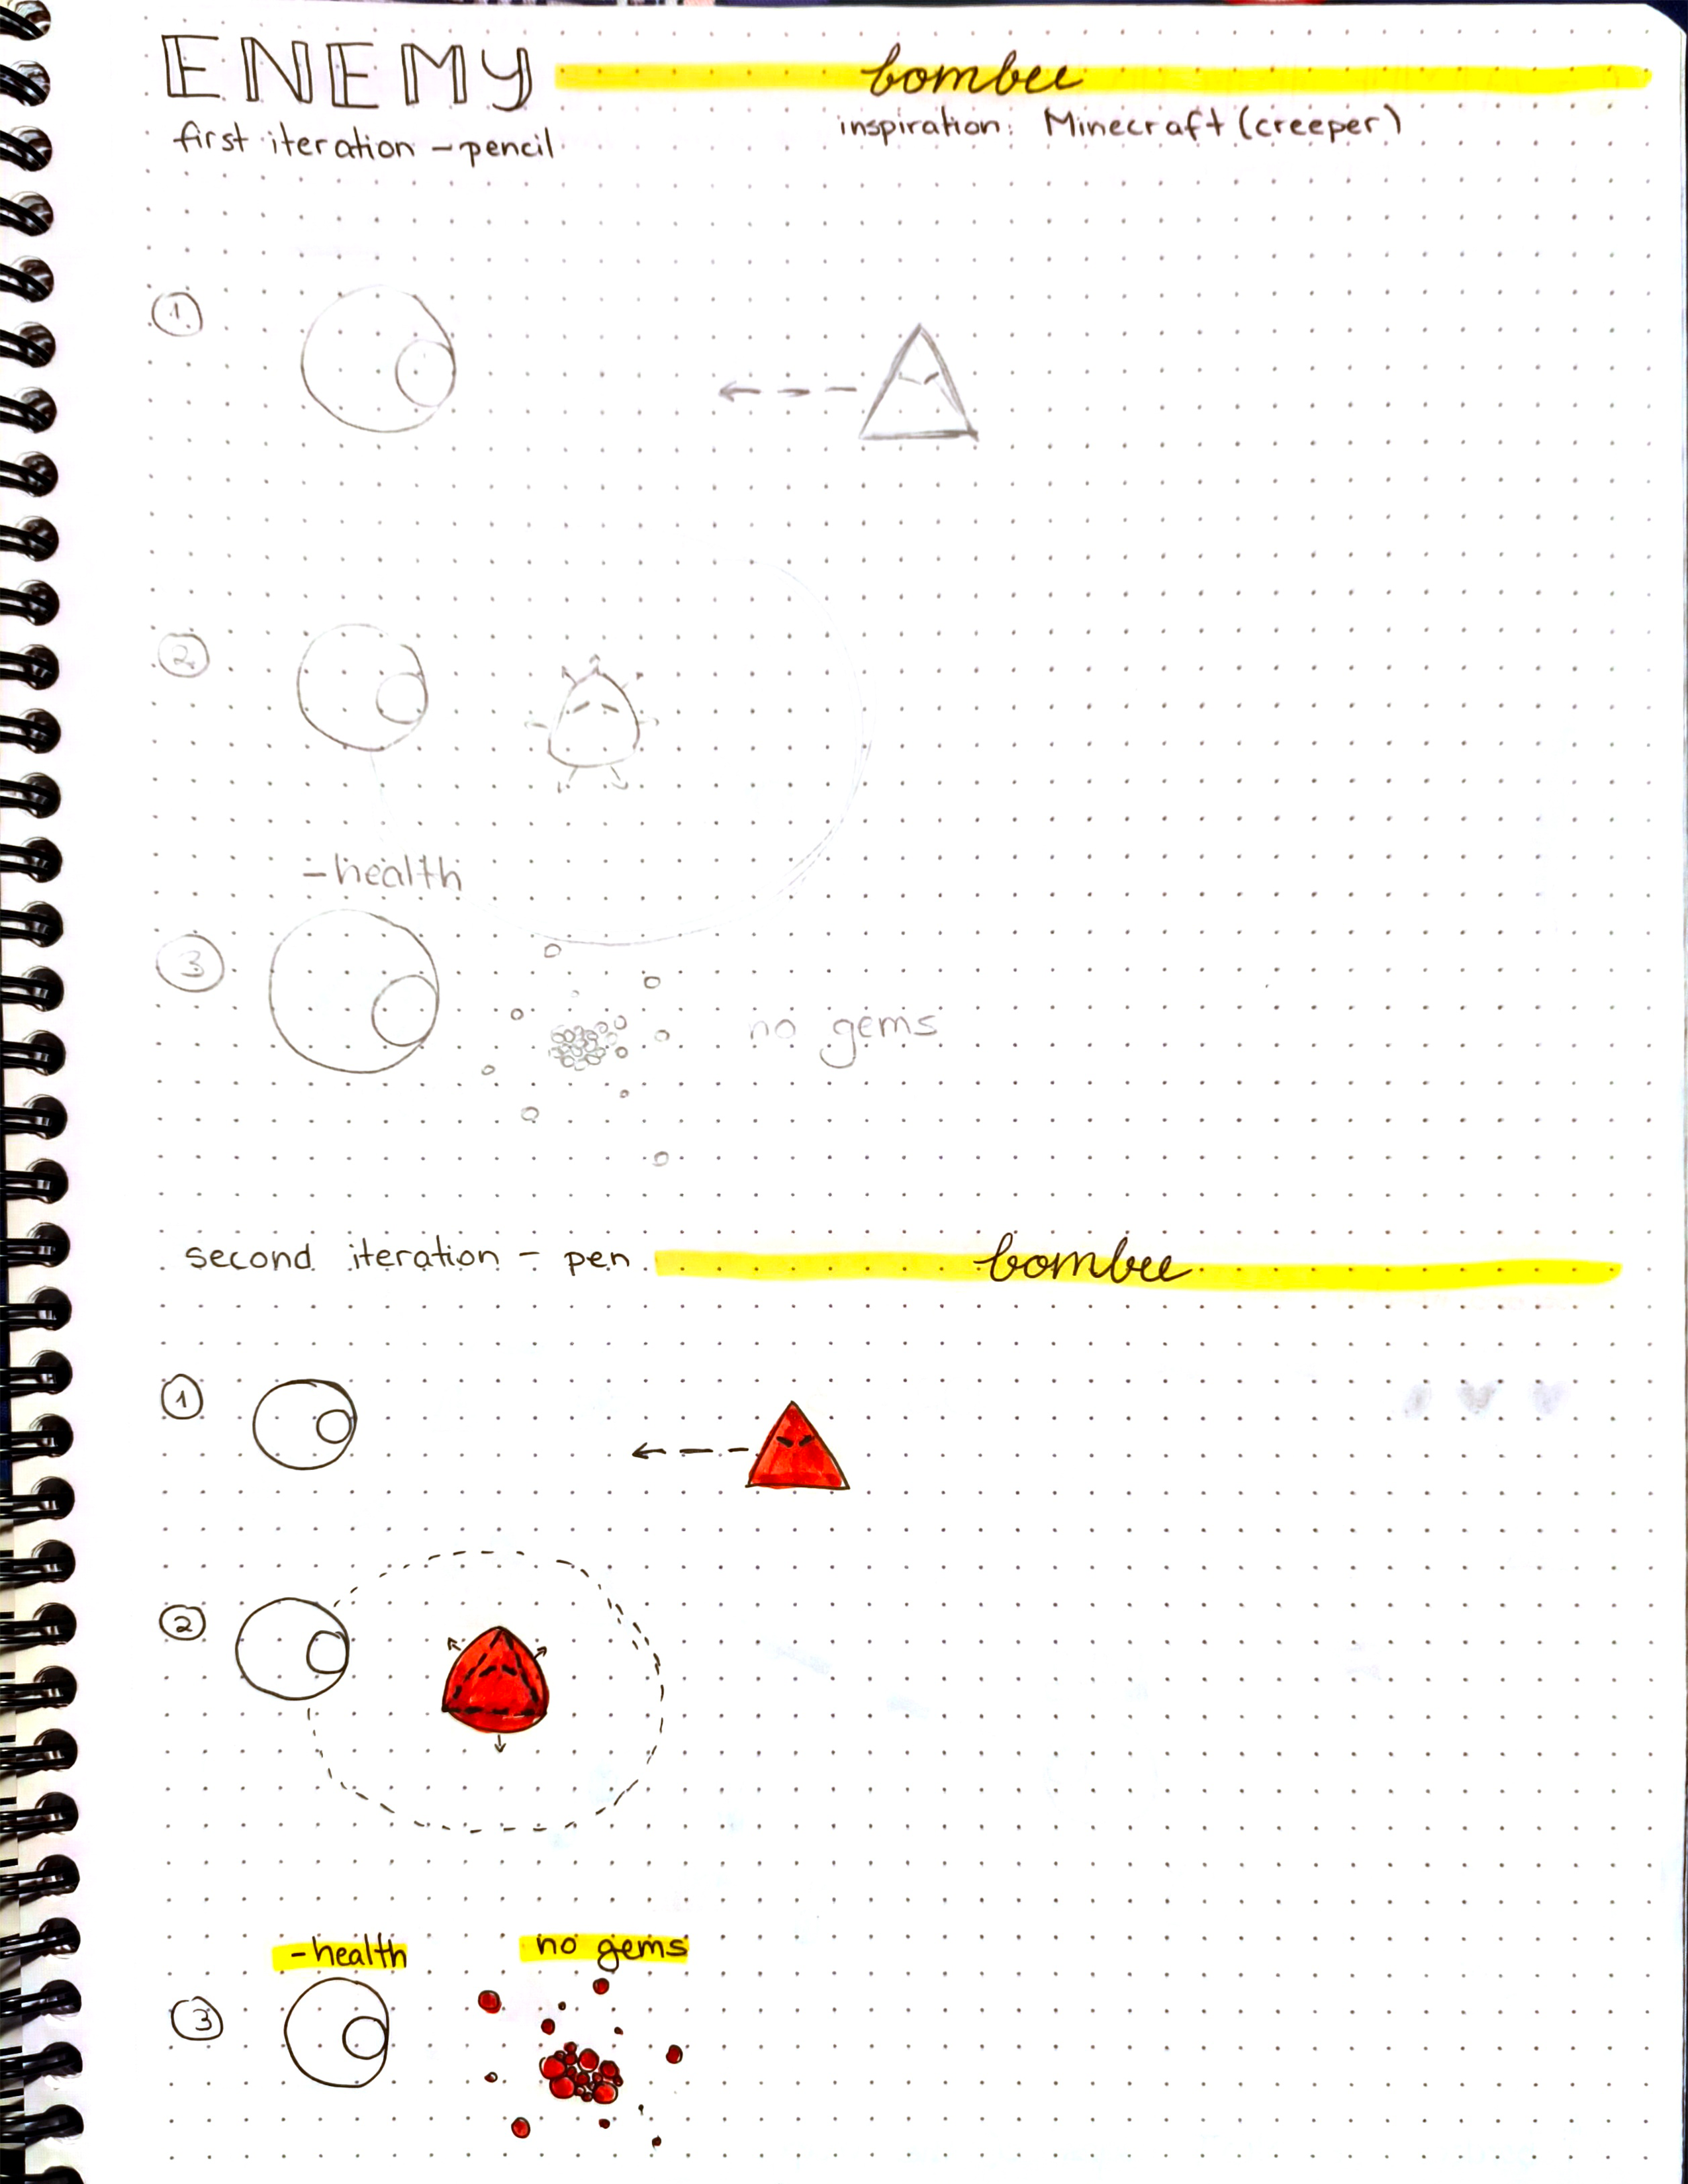 ENEMY bombee
first iteration - pencil inspiration: Minecraft (creeper)
1
2
- health
3
no gems
second iteration - pen bombee
1
2
- health no gems
3